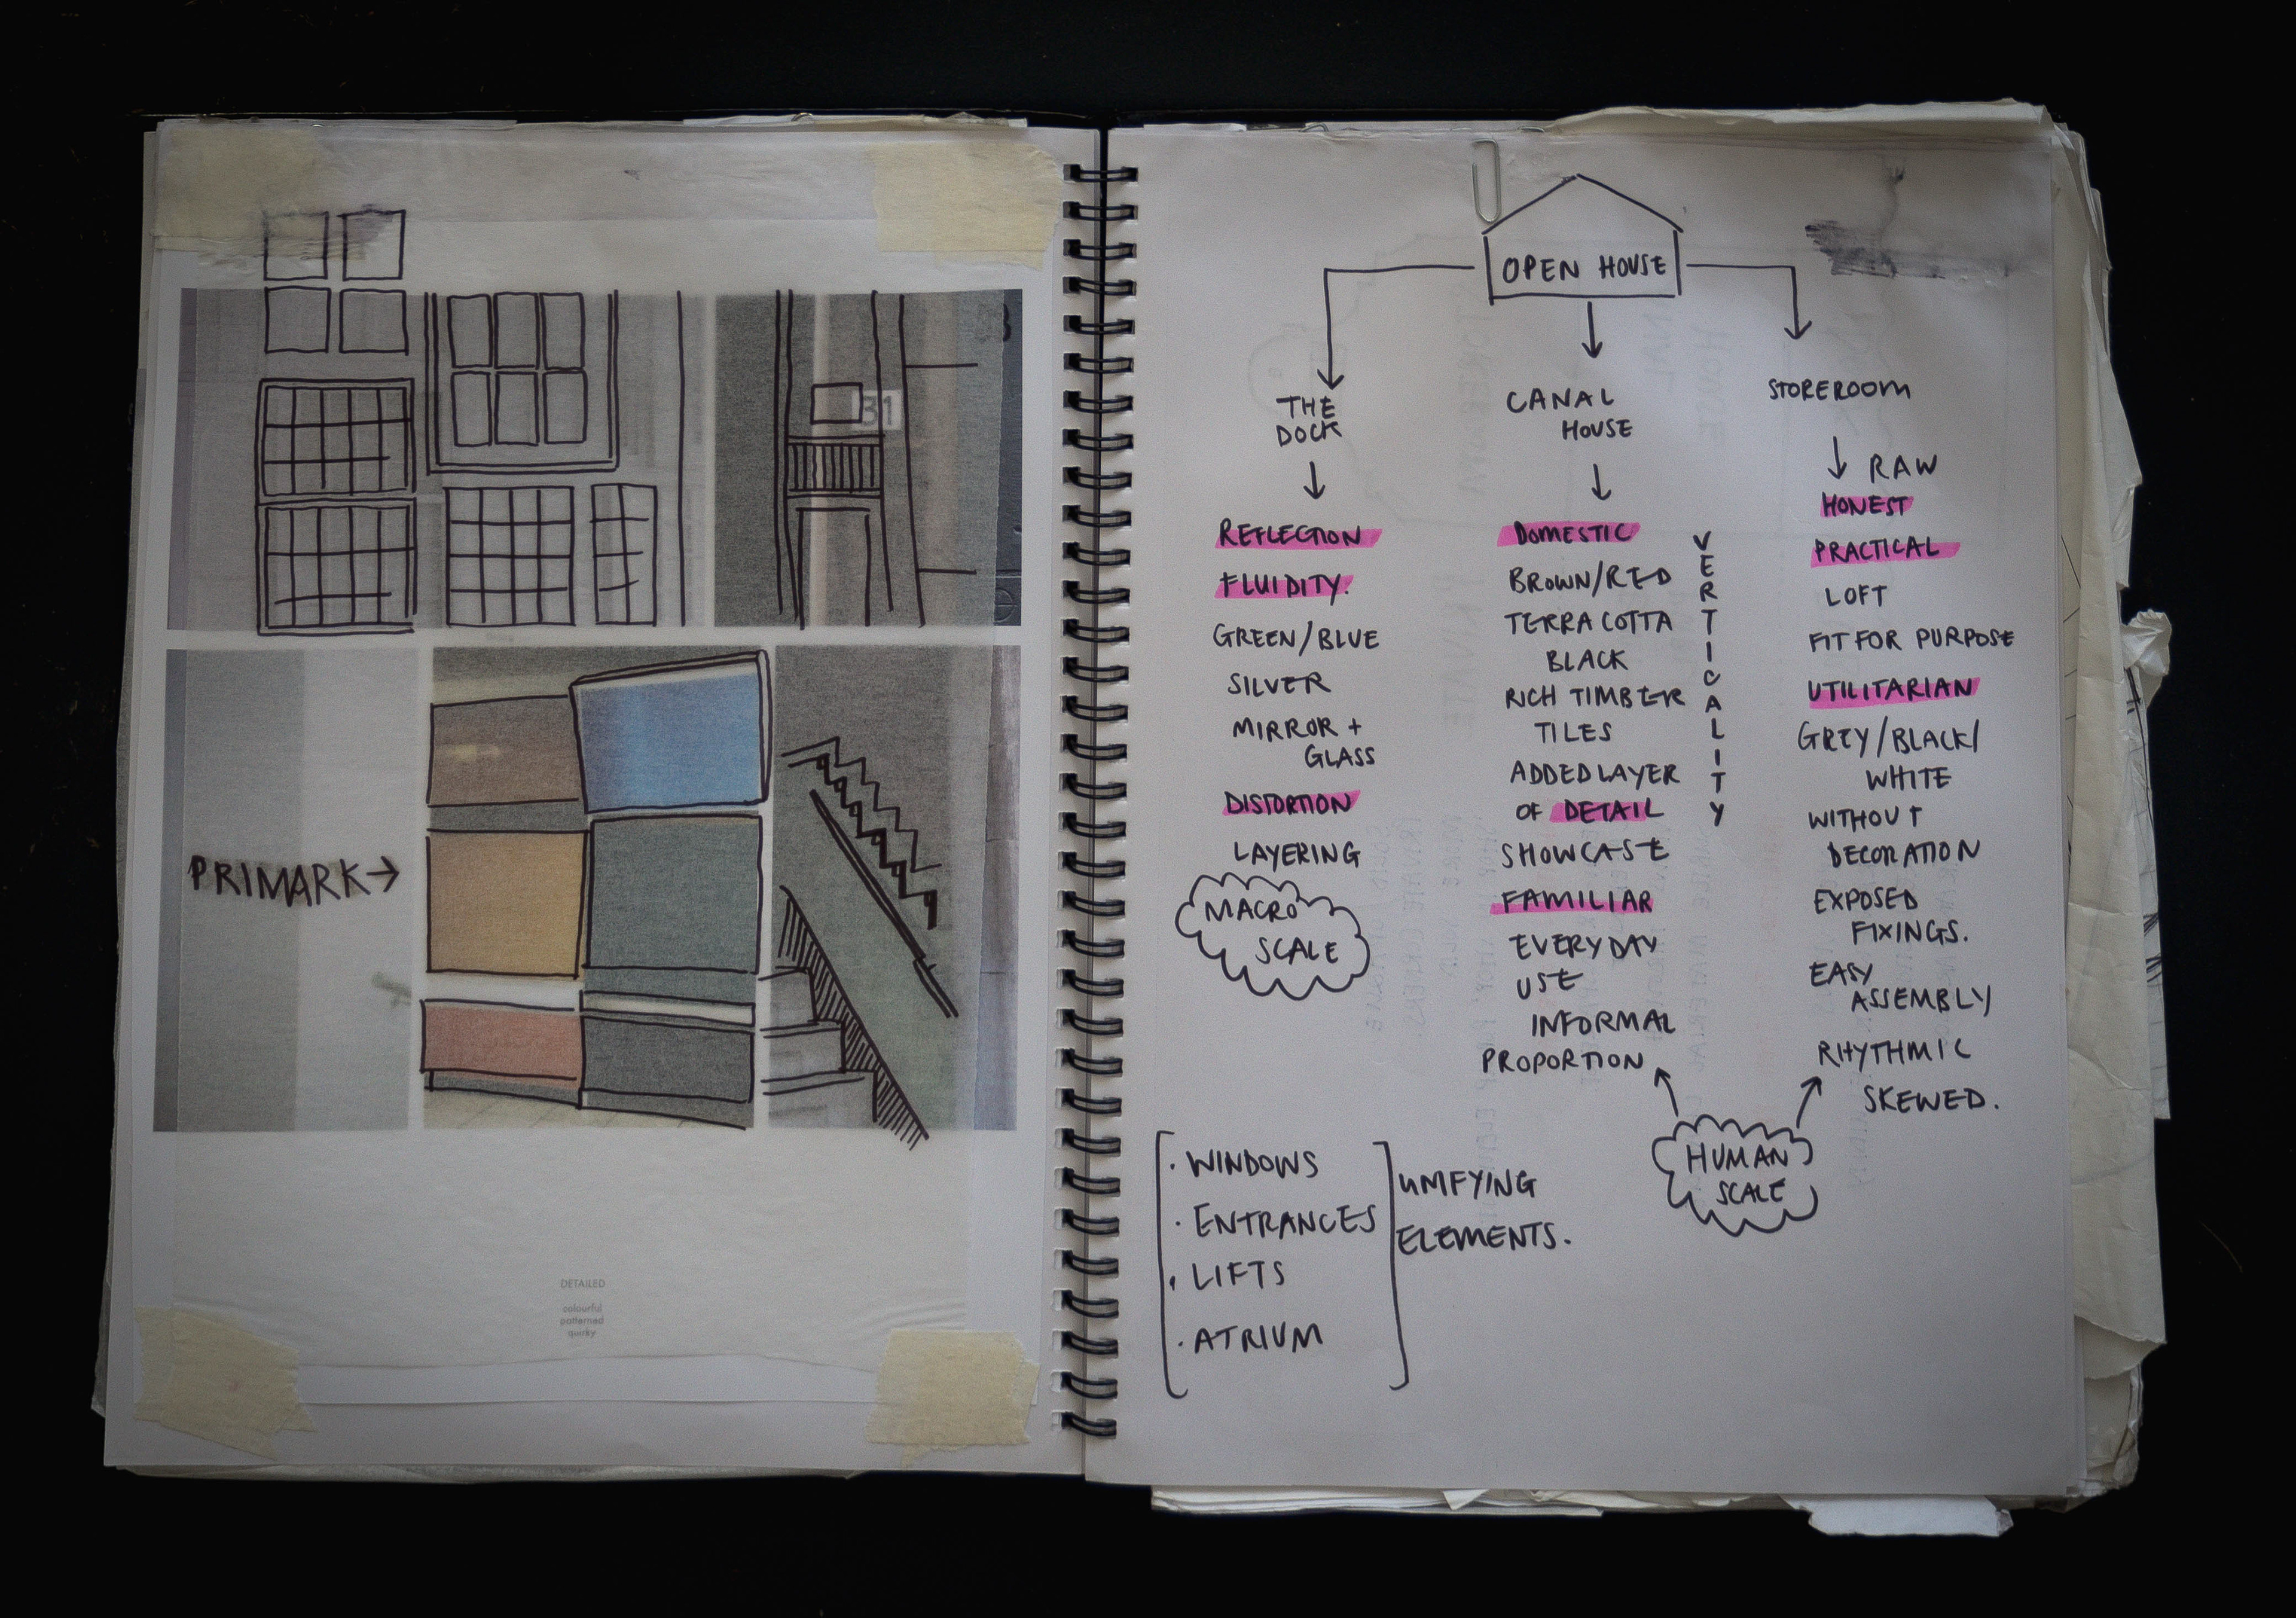 31
PRIMARK→
DETAILED
colourful
patterned
quirky
OPEN HOUSE
THE
DOCK
REFLECTION
FLUIDITY.
GREEN/BLUE
SILVER
MIRROR +
GLASS
DISTORTION
LAYERING
MACRO
SCALE
CANAL
HOUSE
DOMESTIC
BROWN/RED
TERRACOTTA
BLACK
RICH TIMBER
TILES
ADDED LAYER
OF DETAIL
SHOWCASE
FAMILIAR
EVERYDAY
USE
INFORMAL
PROPORTION
VERTICALITY
STOREROOM
RAW
HONEST
PRACTICAL
LOFT
FIT FOR PURPOSE
UTILITARIAN
GREY/BLACK/
WHITE
WITHOUT
DECORATION
EXPOSED
FIXINGS.
EASY
ASSEMBLY
RHYTHMIC
SKEWED.
HUMAN
SCALE
· WINDOWS
· ENTRANCES
· LIFTS
· ATRIUM
UNIFYING
ELEMENTS.